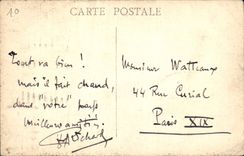 10
CARTE POSTALE
Tout va bien !
mais il fait chaud,
dans votre pays
Meilleures
Monsieur Watteaux
44 Rue Curial
Paris XIX